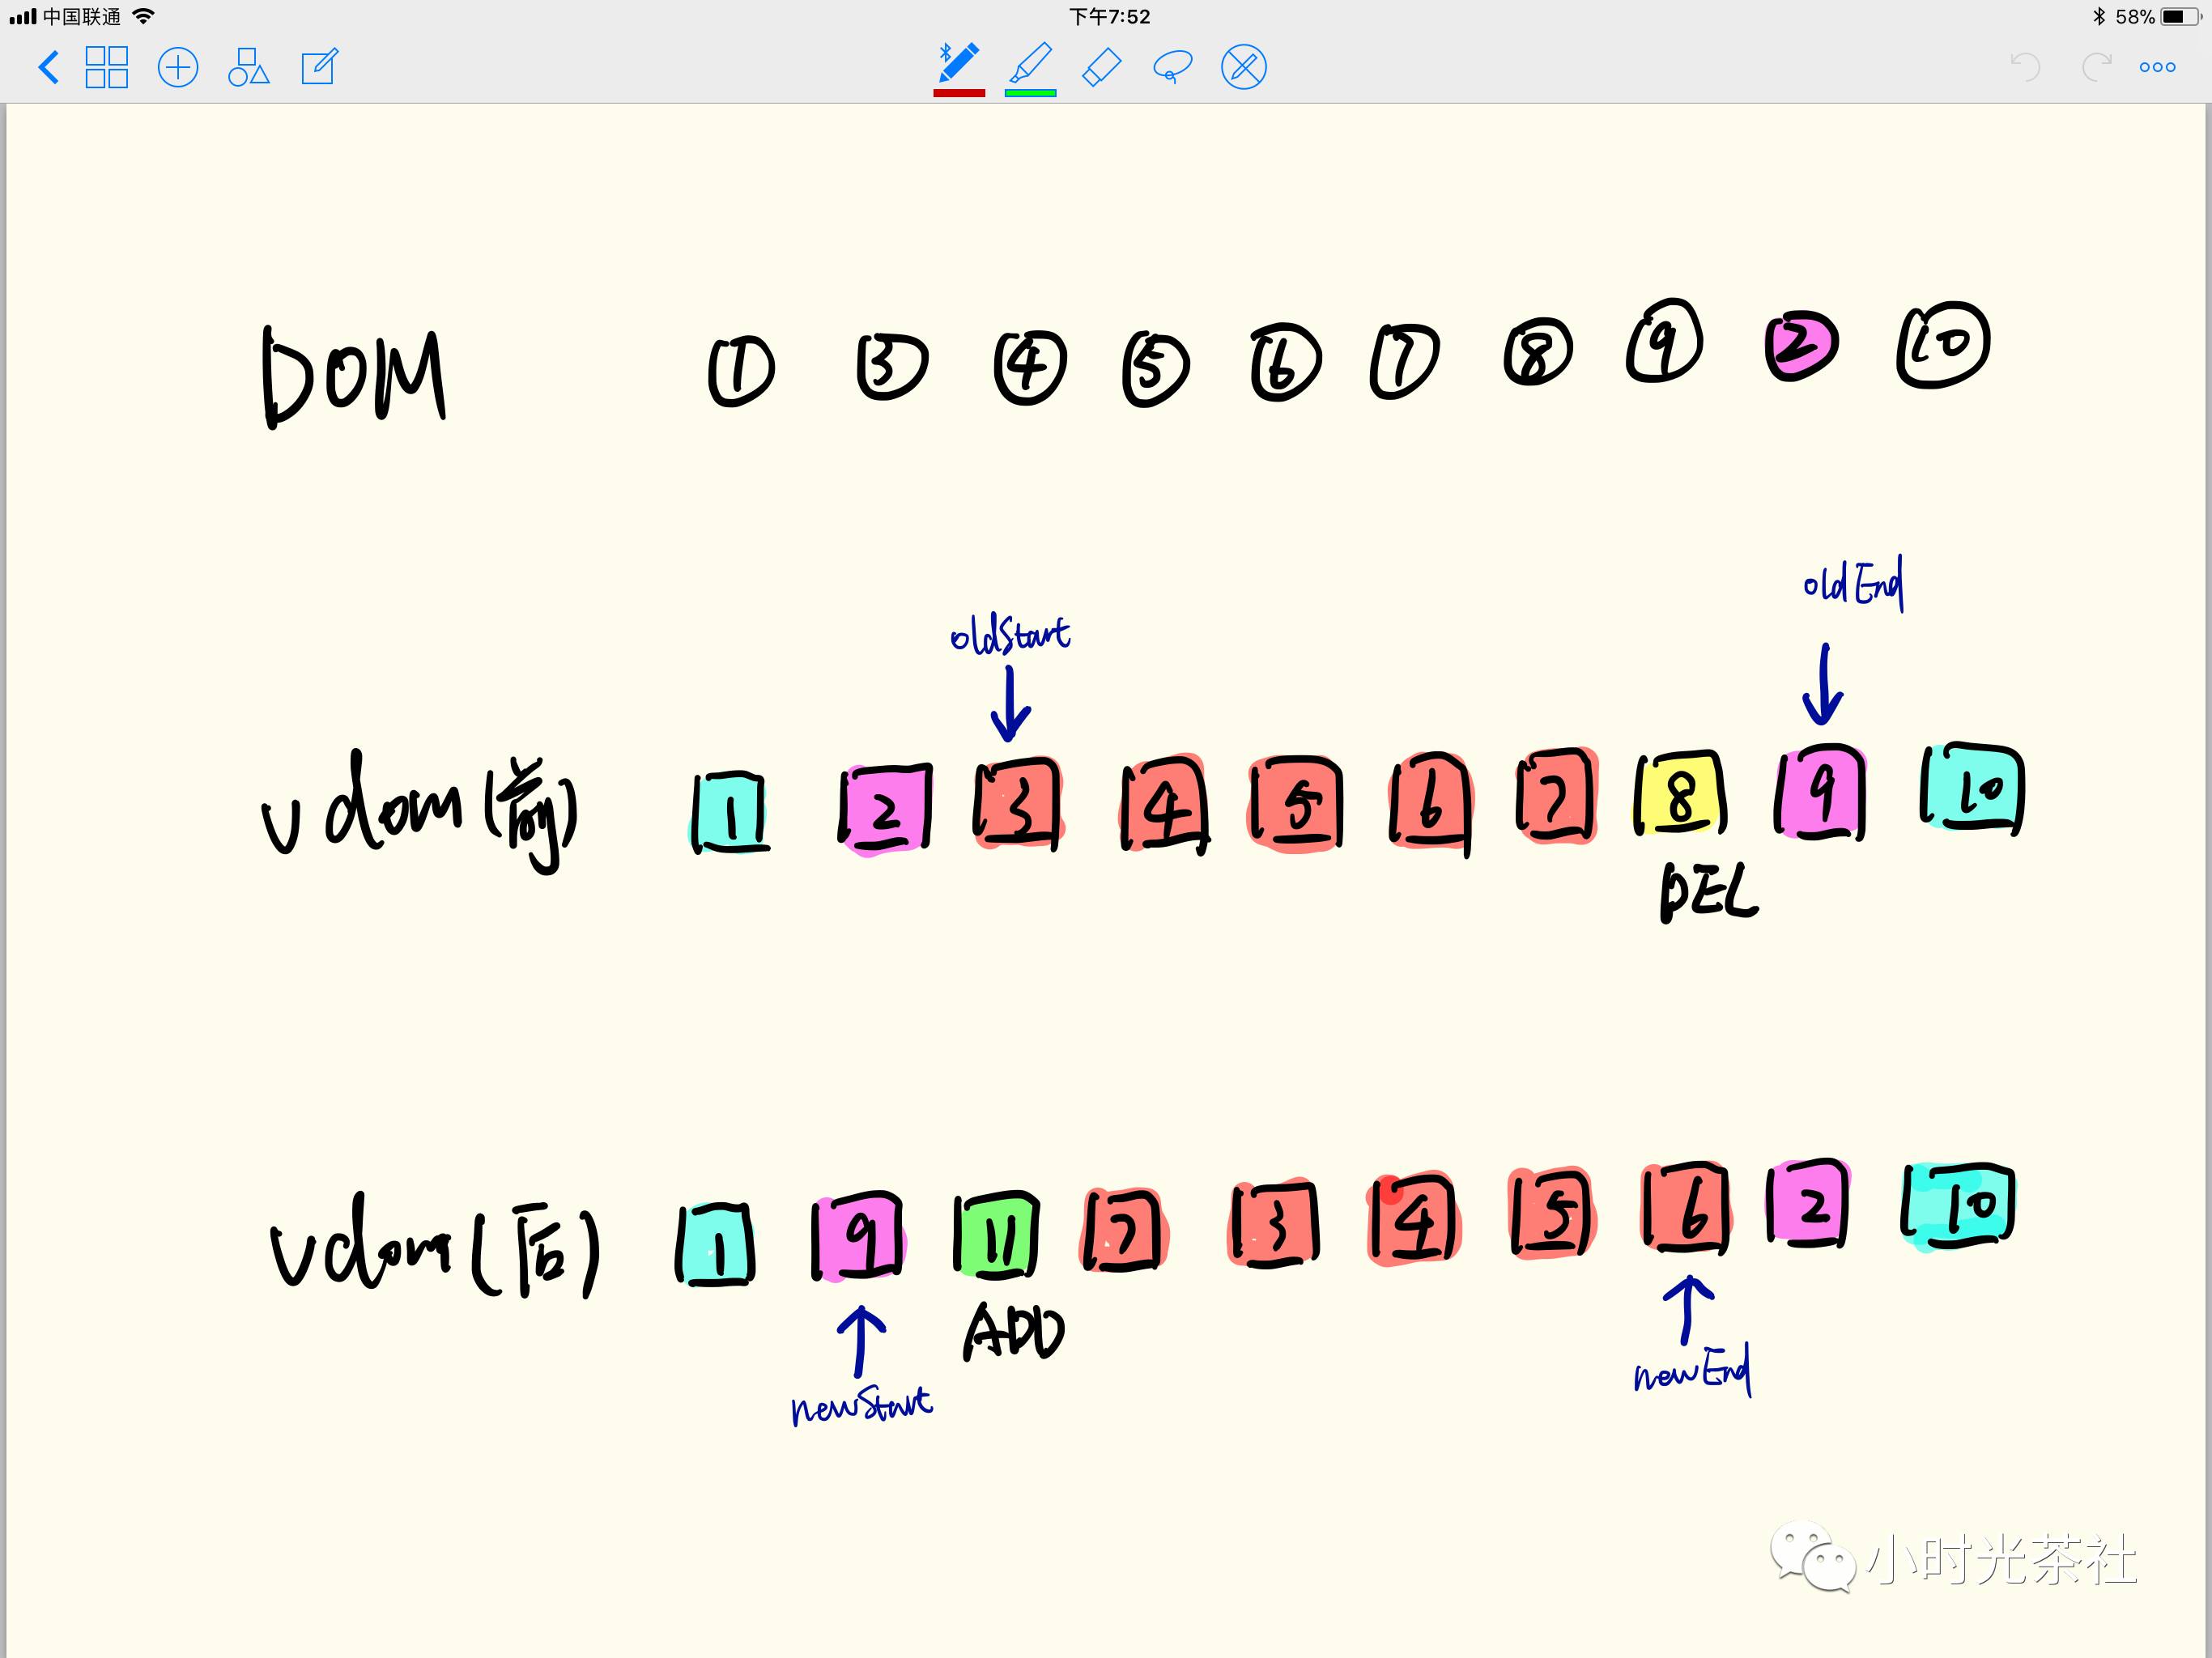 中国联通 下午7:52 58%
DOM ① ③ ④ ⑤ ⑥ ⑦ ⑧ ⑨ ② ⑩
oldStart oldEnd
vdom(前) 1 2 3 4 5 6 7 8 9 10
DEL
vdom(后) 1 9 11 7 3 4 5 6 2 10
ADD
newStart newEnd
小时光茶社